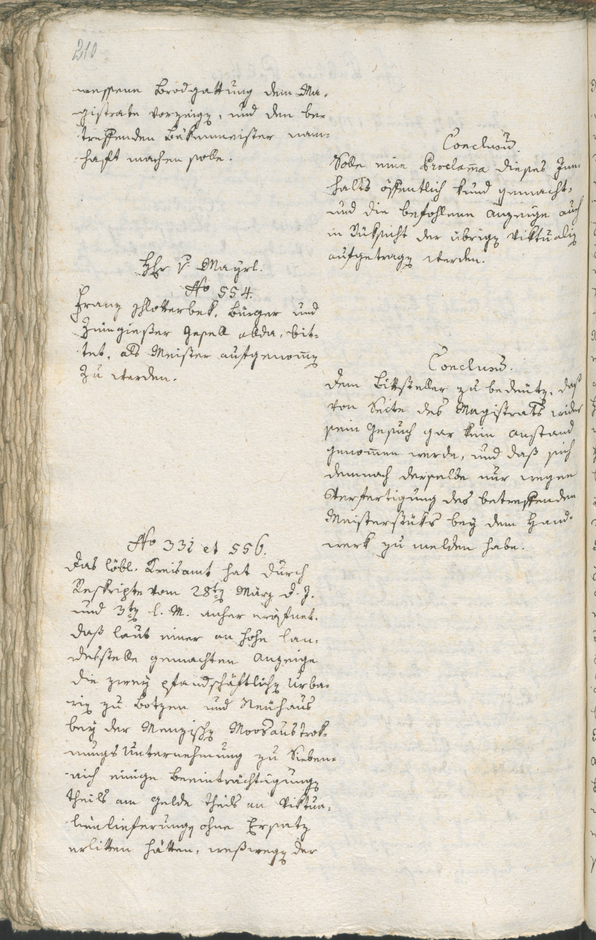 210
messene Brodgattung dem Ma-
gistrate vorzeige, und den be-
treffenden Bäkenmeister nam-
haft machen solle.
Conclusū.
Solle eine Proclama dieses Inn-
halts öffentlich kund gemacht,
und die befohlene Anzeige auch
in Rüksicht der übrigen Viktualien
aufgetragen werden.
Hr v Mayrl.
No 554.
Franz Schlotterbek, Bürger und
Zinngießer Gesell allda, bit-
tet, als Meister aufgenommen
zu werden.
Conclusū.
Dem Bittsteller zu bedeuten, daß
von Seite des Magistrats wider
sein Gesuch gar kein Anstand
genommen werde, und daß sich
demnach derselbe nur wegen
Verfertigung des betreffenden
Meisterstüks bey dem Hand-
werk zu melden habe.
No 331 et 556.
Das löbl. Kreisamt hat durch
Reskripte vom 28ten März d. J.
und 3ten l. M. anher eröfnet,
daß laut einer an hohe Lan-
desstelle gemachten Anzeige
die zwey pfandschäftlichen Urba-
rien zu Botzen und Neuhaus
bey der Menzischen Moosaustrok-
nungs Unternehmung zu Sieben-
eich einige Beeinträchtigungen
theils am Gelde theils an Viktua-
lienlieferungen ohne Ersatz
erlitten hätten, weßwegen der